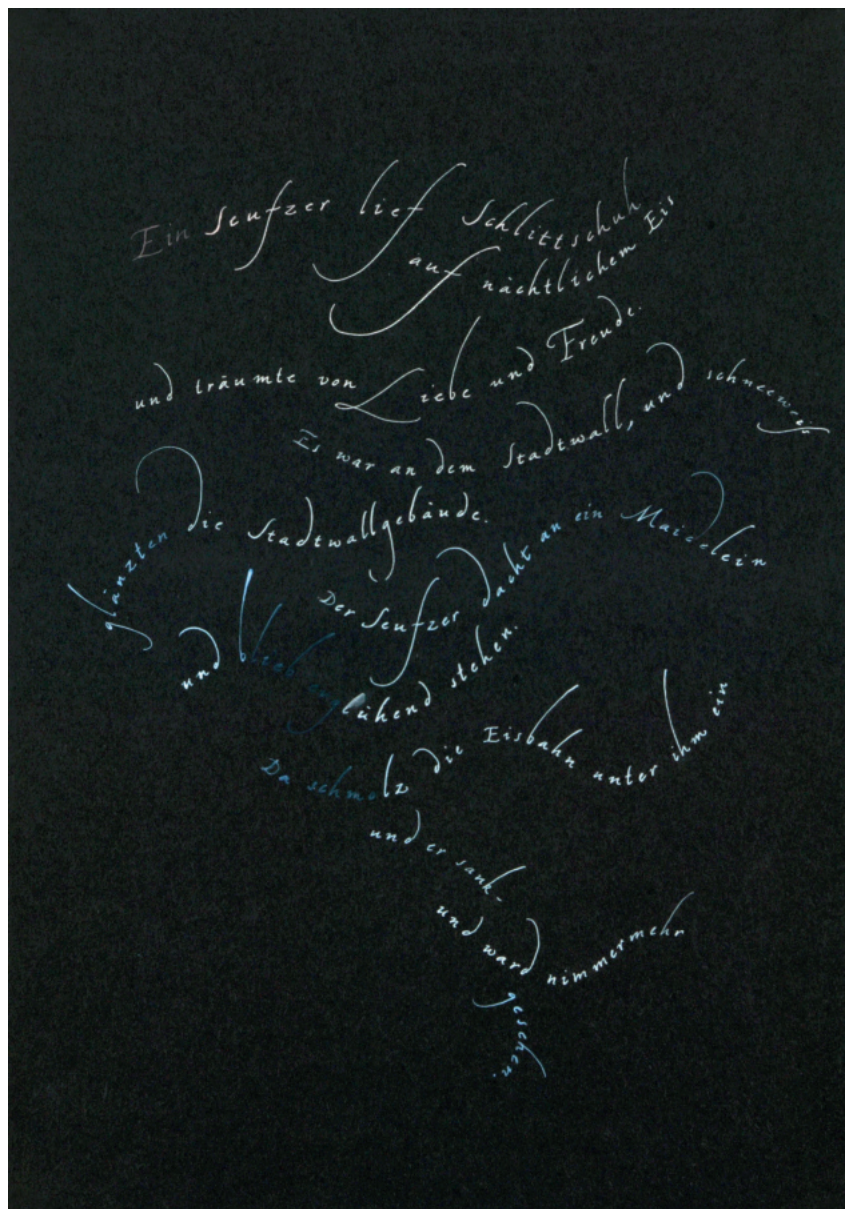 Ein Seufzer lief Schlittschuh
auf nächtlichem Eis
und träumte von Liebe und Freude.
Es war an dem Stadtwall, und schneeweiß
glänzten die Stadtwallgebäude.
Der Seufzer dacht an ein Maidelein
und blieb erglühend stehen.
Da schmolz die Eisbahn unter ihm ein
und er sank-
und ward nimmermehr
gesehen.